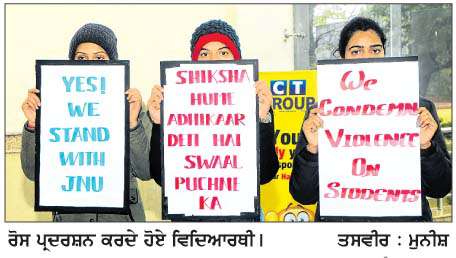 YES!
WE
STAND
WITH
JNU
SHIKSHA
HUME
ADHIKAAR
DETI HAI
SWAAL
PUCHNE
KA
CT
GROUP
You
We
CONDEMN
VIOLENCE
ON
STUDENTS
ਰੋਸ ਪ੍ਰਦਰਸ਼ਨ ਕਰਦੇ ਹੋਏ ਵਿਦਿਆਰਥੀ। ਤਸਵੀਰ : ਮੁਨੀਸ਼